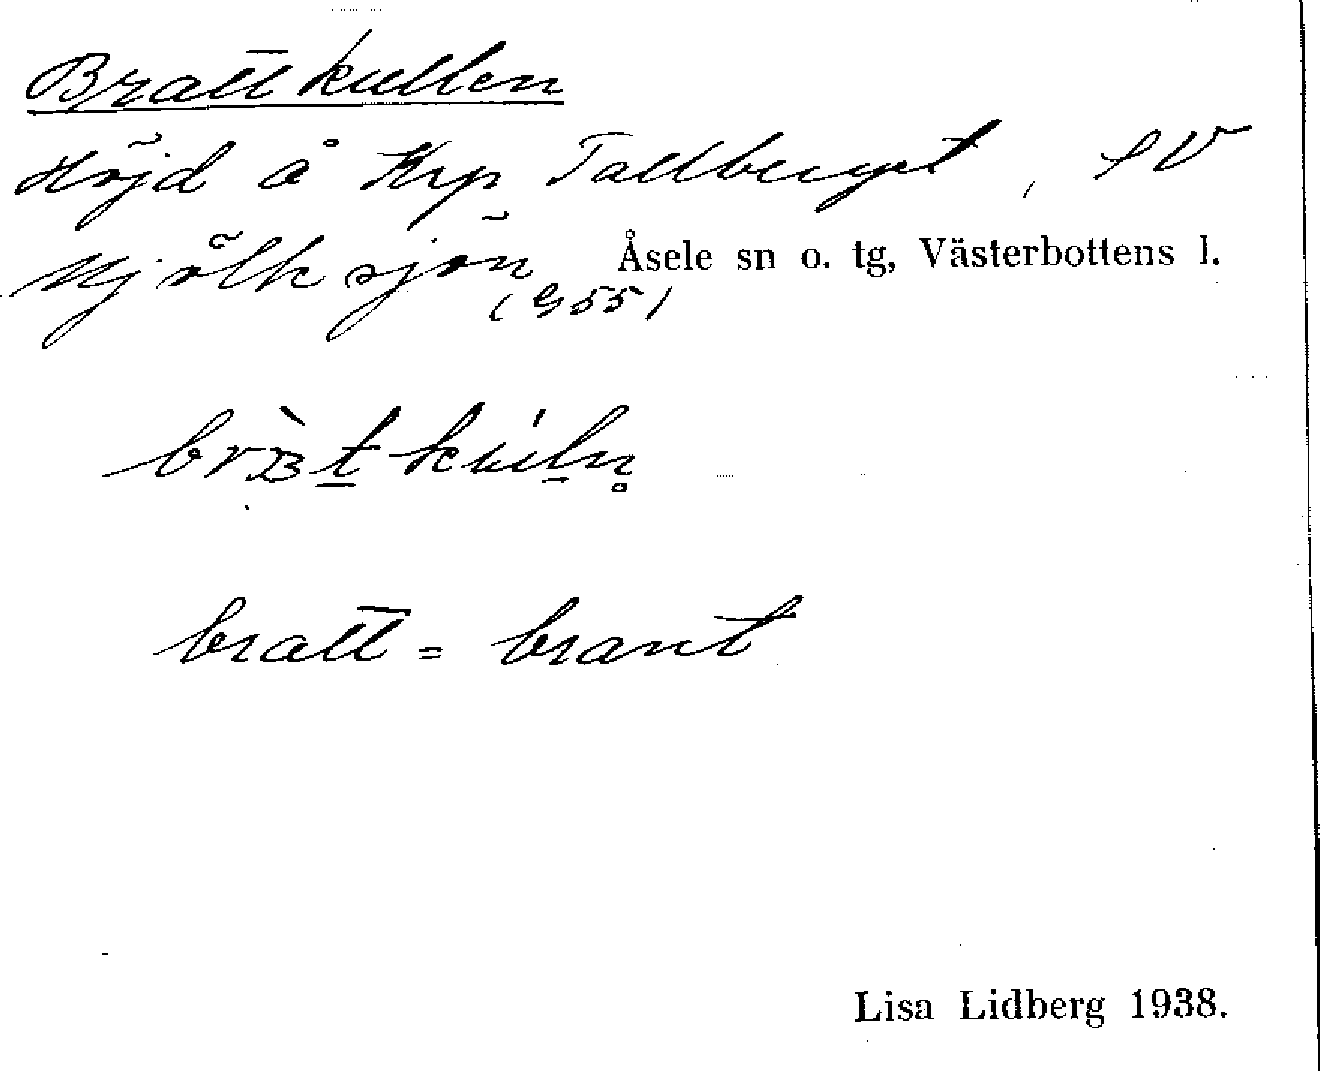 Brattkullen
Höjd å Krp Tallberget, SV
Mjölksjön Åsele sn o. tg, Västerbottens l.
(G55)
bratt = brant
Lisa Lidberg 1938.